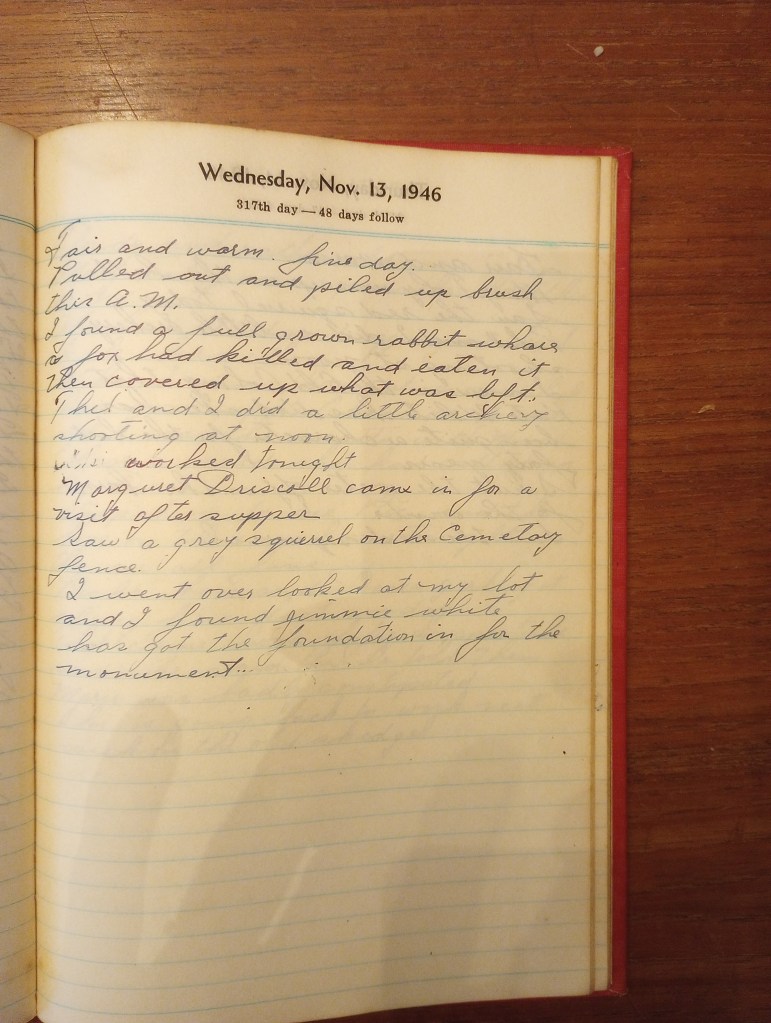 Wednesday, Nov. 13, 1946
317th day — 48 days follow
Fair and warm. fine day.
Pulled out and piled up brush
this A.M.
I found a full grown rabbit whare
a fox had killed and eaten it
then covered up what was left.
Phil and I did a little archery
shooting at noon.
worked tonight
Marguret Driscoll came in for a
visit after supper
Saw a grey squierrel on the Cemetay
fence.
I went over looked at my lot
and I found jimmie white
has got the foundation in for the
monument..